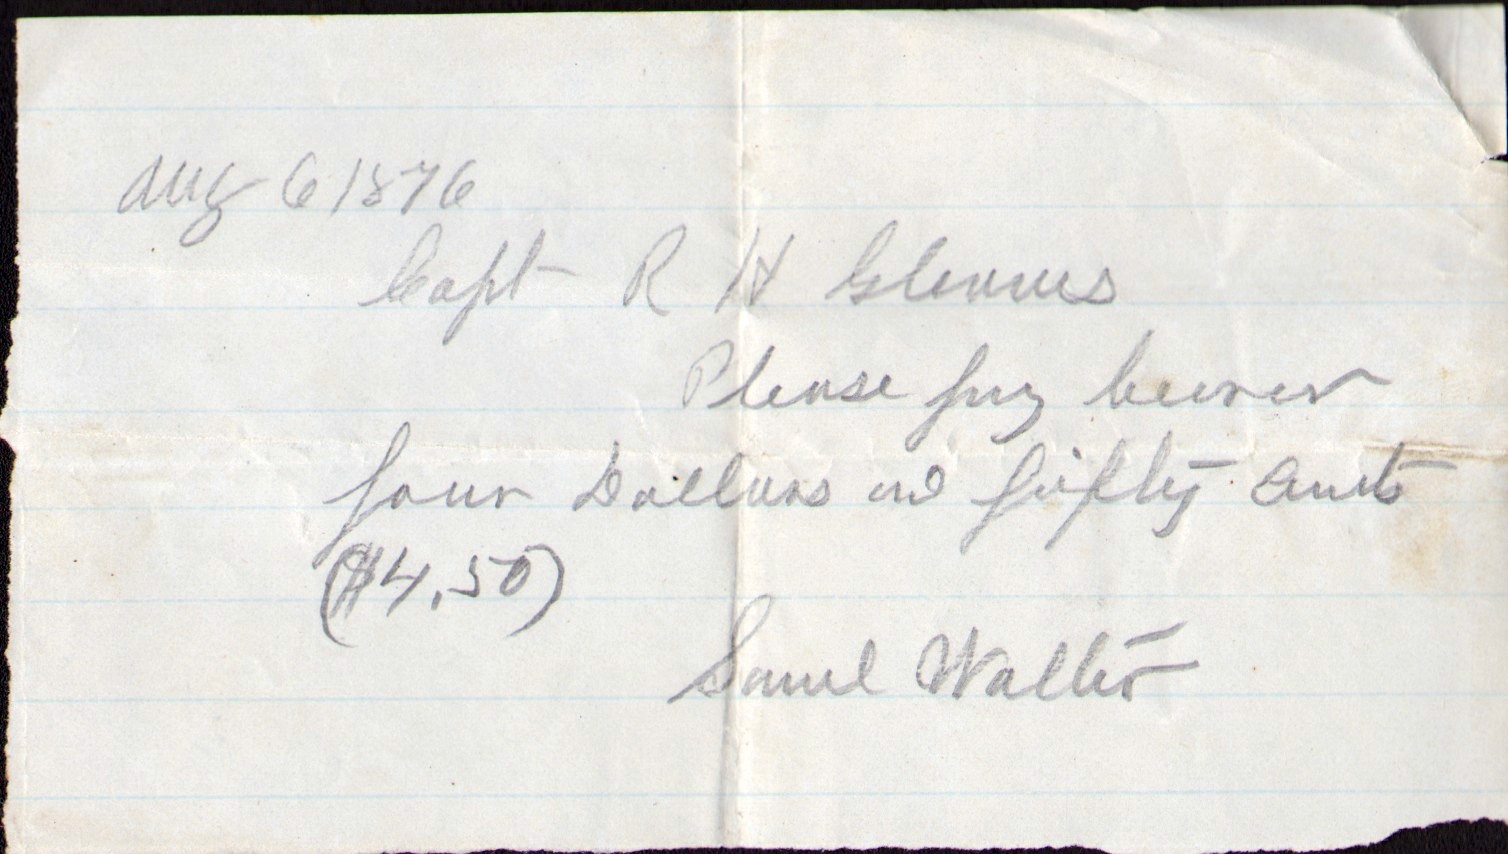 Aug 6 1876
Capt R H Gleaves
Please pay bearer
four Dollars and fifty cents
($4.50)
Saml Walter